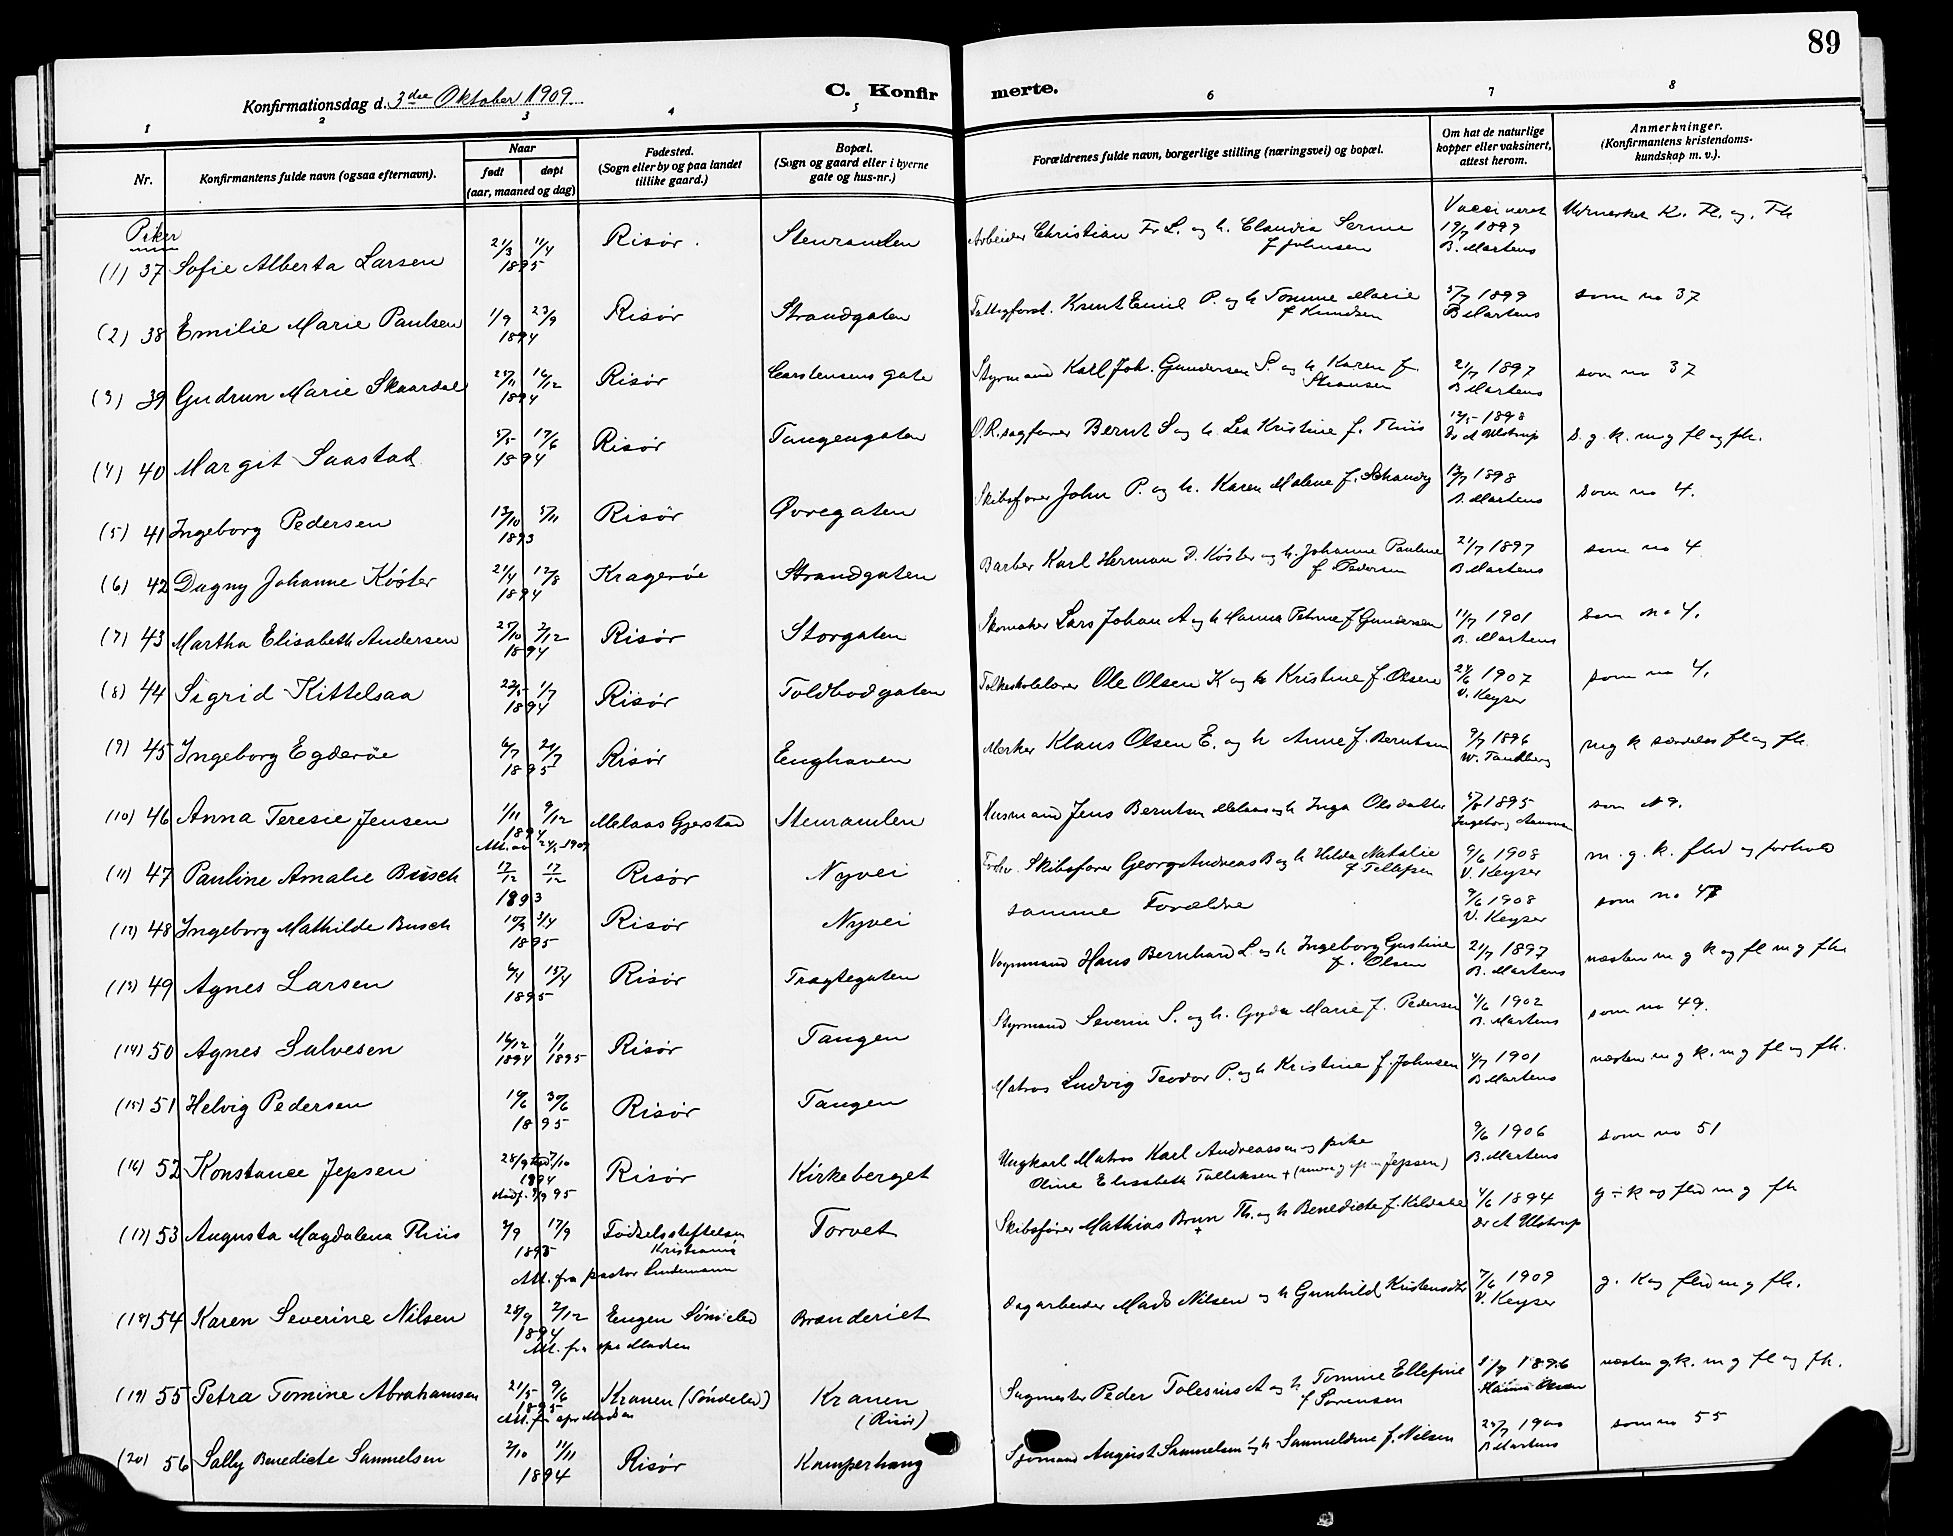 89
Konfirmationsdag d. 3die Oktober 1909. C. Konfirmerte.
1 2 3 4 5 6 7 8
Nr. Konfirmantens fulde navn (ogsaa efternavn). Naar født døpt (aar, maaned og dag) Fødested. (Sogn eller by og paa landet tillike gaard.) Bopæl. (Sogn og gaard eller i byerne gate og hus-nr.) Forældrenes fulde navn, borgerlige stilling (næringsvei) og bopæl. Om hat de naturlige kopper eller vaksinert, attest herom. Anmerkninger. (Konfirmantens kristendomskundskap m. v.).
Piker
(1) 37 Sofie Alberta Larsen 21/3 11/4 1895 Risør. Stenramlen Arbeider Christian Fr L. og h. Claudia Serine f Johnsen Vaccineret 19/7 1899 B. Martens Udmerket K. Fl. og. Fh
(2) 38 Emilie Marie Paulsen 1/9 23/9 1894 Risør Strandgaten Fattigforst. Knut Emil P. og h Tomine Marie f Knudsen 5/7 1899 B Martens som no 37
(3) 39 Gudrun Marie Skaardal 25/11 16/12 1894 Risør Carstensens gate Styrmand Karl Joh. Gundersen S. og h Karen f. 21/7 1897 B Martens som no 37
(4) 40 Margit Saastad 5/5 17/6 1894 Risør Tangengaten O.R.sagfører Bernt S og h. Lea Kristine f. Thiis 12/5 1898 Dr A Ulstrup s. g. k. mg fl og fh.
(5) 41 Ingeborg Pedersen 13/10 5/11 1893 Risør Øvregaten Skibsfører John P. og h. Karen Malene f. 13/7 1898 B. Martens som no 4.
(6) 42 Dagny Johanne Køster 21/4 12/8 1894 Kragerøe Strandgaten Barber Karl Herman D. Køster og h. Johanne Pauline f. Pedersen 21/7 1897 B Martens som no 4
(7) 43 Martha Elisabeth Andersen 25/10 2/12 1894 Risør Storgaten Skomaker Lars Johan A og h Hanna Petrine f Gundersen 11/7 1901 B. Martens som no 4.
(8) 44 Sigrid Kittelsaa 22/5 1/7 1894 Risør Toldbodgaten Folkeskolelærer Ole Olsen K og h Kristine f. Olsen 24/6 1907 V. Keyser som no 4.
(9) 45 Ingeborg Egderøe 6/7 21/7 1895 Risør Enghaven Merker Klaus Olsen E. og h Anne f. Berntsen 9/7 1896 W. Tandberg mg k særdeles fl og fh.
(10) 46 Anna Teresie Jensen 1/11 9/12 1894 Melaas Gjerstad Stenramlen Husmand Jens Berntsen Melaas og h Inga Olsdatter 5/8 1895 Ingeborg som N 9.
(11) 47 Pauline Amalie Busch 17/12 17/12 1893 Risør Nyvei Skibsfører Georg Andreas B og h Hilda Natalie f Tellefsen 9/6 1908 V. Keyser m. g. k. flid og forhold
(12) 48 Ingeborg Mathilde Busch 10/3 3/4 1895 Risør Nyvei samme Forældre 9/6 1908 V. Keyser som no 47
(13) 49 Agnes Larsen 6/4 15/4 1895 Risør Tragtegaten Vognmand Hans Bernhard L. og h Ingeborg Gustine f. Olsen 21/7 1897 B. Martens næsten m g k og fl m g fh
(14) 50 Agnes Salvesen 16/12 1894 1/1 1895 Risør Tangen Styrmand Severin S. og h. Gyda Marie f. Pedersen 4/6 1902 B. Martens som no 49.
(15) 51 Helvig Pedersen 10/6 30/6 1895 Risør Tangen Matros Ludvig Teodor P. og h Kristine f. Johnsen 4/7 1901 B Martens næsten m g k. m g fl og fh.
(16) 52 Konstance Jepsen 28/9 7/10 1894 Stadf. 8/9 95 Risør Kirkeberget Ungkarl Matros Karl Andreassen og pike Oline Elisabeth Tallaksen 9/6 1906 B. Martens som no 51
(17) 53 Augusta Magdalena Riis 3/9 17/9 1895 Fødselsstiftelsen Kristiania Att. fra pastor Lindemann Torvet Skibsfører Mathias Brun Th. og h Benedicte f. 4/6 1894 Dr A Ulstrup g ÷ k og flid m g fh
(18) 54 Karen Severine Nilsen 28/9 2/12 1894 Att. fra Engen Søndeled Brænderiet Dagarbeider Mads Nilsen og h Gunhild Kristensdtr 7/6 1909 V. Keyser g. k og flid m g fh.
(19) 55 Petra Tomine Abrahamsen 21/5 9/6 1895 Att. fra Kranen (Søndeled) Kranen (Risør) Sagmester Peder Tolesius A og h Tomine Ellefine f Sørensen 1896 næsten g.k. m g fl og fh.
(20) 56 Sally Benedicte Samuelsen 2/10 11/11 1894 Risør Kamperhaug Sjømand August Samuelsen og h Samueline f. Nilsen 25/7 1900 B Martens som no 55